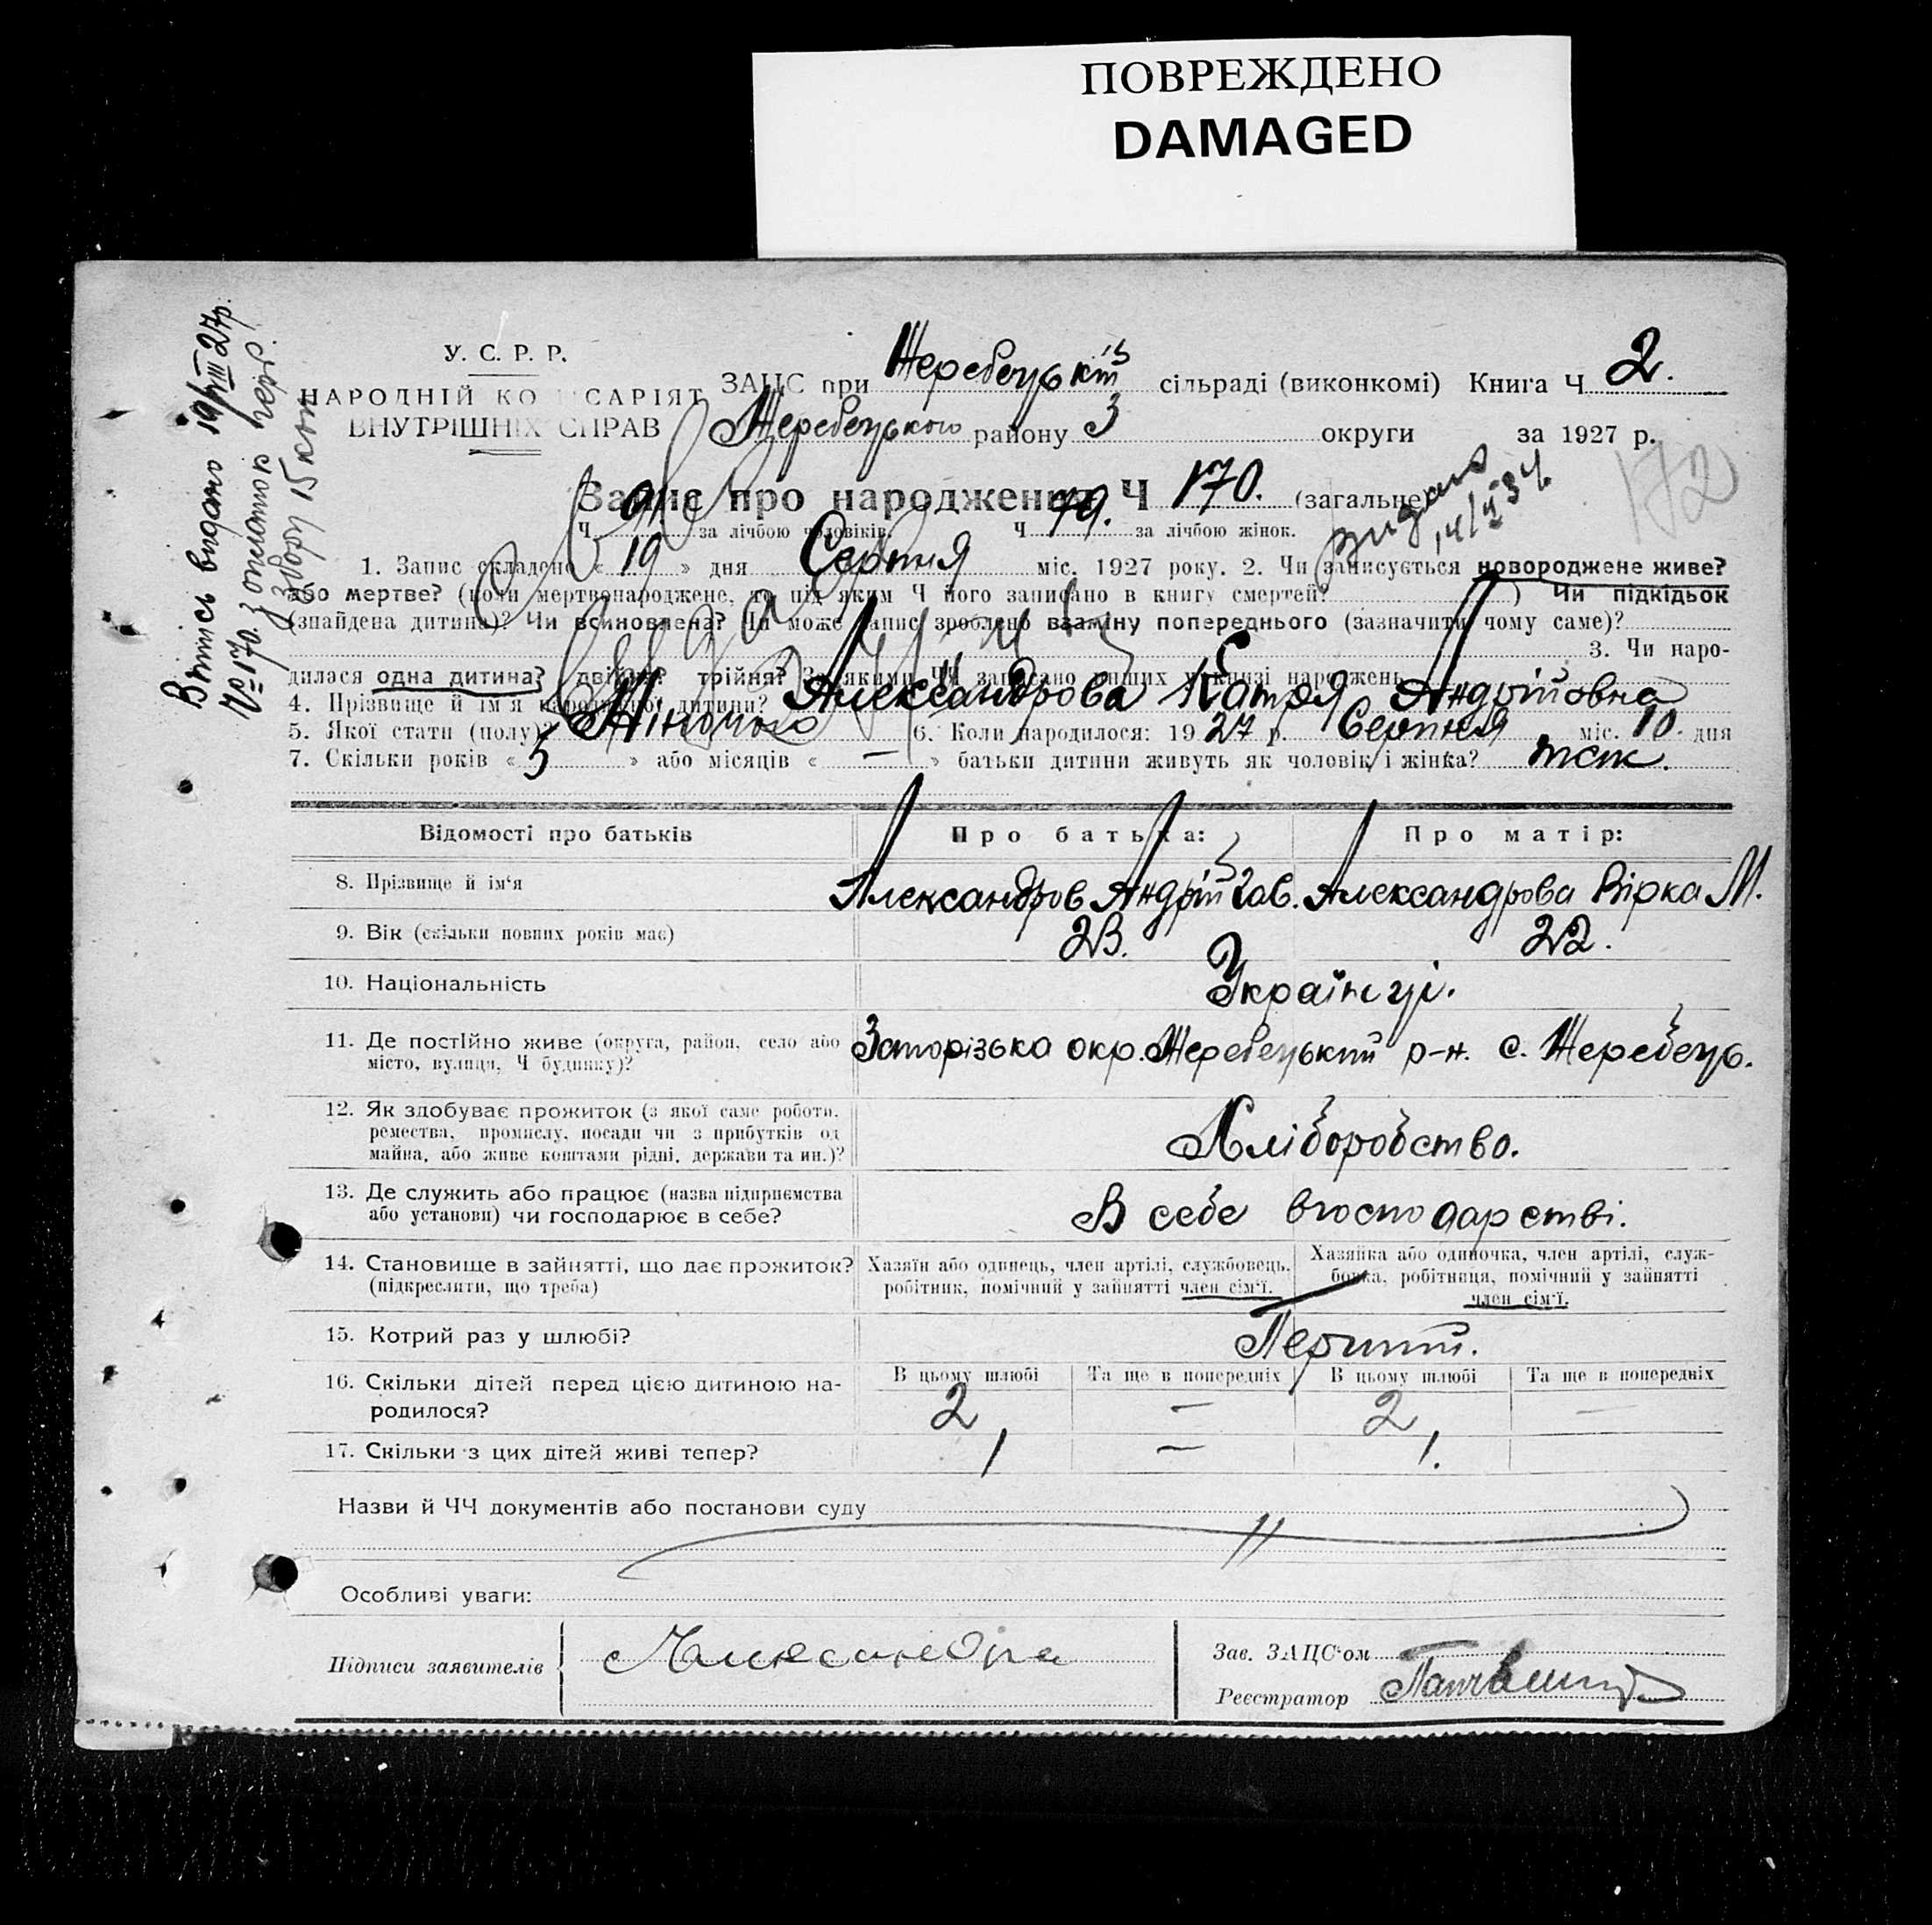 ПОВРЕЖДЕНО
DAMAGED
Витсь видано 19/VIII 27р.
№170. з оплатою герб.
збору 15 коп
У. С. Р. Р.
НАРОДНІЙ КО САРІЯТ
ВНУТРІШНІХ СПРАВ
ЗАЦС при Жеребецькій сільраді (виконкомі) Книга Ч 2.
Жеребецького району З округи за 1927 р.
Запис про народження Ч 170. (загальне)
видано
172
Ч 91 за лічбою чоловіків. Ч 79. за лічбою жінок.
1. Запис складено « 19 » дня Серпня міс. 1927 року. 2. Чи записується новороджене живе?
або мертве? (коли мертвонароджене, то під яким Ч його записано в книгу смертей? ) Чи підкідьок
(знайдена дитина)? Чи всиновлена? Чи може запис зроблено взаміну попереднього (зазначити чому саме)?
3. Чи наро-
дилася одна дитина? двійня? трійня? За якими ЧЧ записано инших у книзі народжень
4. Прізвище й ім'я народженої дитини? Александрова Катря Андрійовна
5. Якої стати (полу)? Жіночого 6. Коли народилося: 1927 р. Серпня міс. 10. дня
7. Скільки років « 5 » або місяців « — » батьки дитини живуть як чоловік і жінка?
Відомості про батьків Про батька: Про матір:
8. Прізвище й ім'я Александров Андрій Сав. Александрова Вірка М.
9. Вік (скільки повних років має) 23. 22.
10. Національність Українці.
11. Де постійно живе (округа, район, село або Запорізька окр. Жеребецький р-н. с. Жеребець.
місто, вулиця, Ч будинку)?
12. Як здобуває прожиток (з якої саме роботи,
ремества, промислу, посади чи з прибутків од Хліборобство.
майна, або живе коштами рідні, держави та ин.)?
13. Де служить або працює (назва підприємства
або установи) чи господарює в себе? В себе вгосподарстві.
14. Становище в зайнятті, що дає прожиток? Хазяїн або одинець, член артілі, службовець, Хазяйка або одиночка, член артілі, служ-
(підкреслити, що треба) робітник, помічний у зайнятті член сім'ї. бовка, робітниця, помічний у зайнятті
член сім'ї.
15. Котрий раз у шлюбі? Перший.
16. Скільки дітей перед цією дитиною на- В цьому шлюбі Та ще в попередніх В цьому шлюбі Та ще в попередніх
родилося? 2 — 2 —
17. Скільки з цих дітей живі тепер? 1 — 1.
Назви й ЧЧ документів або постанови суду
Особливі уваги:
Підписи заявителів
Зав. ЗАЦС'ом
Реєстратор